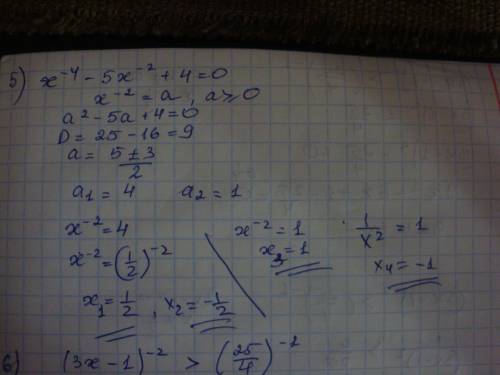 5) x⁻⁴ - 5x⁻² + 4 = 0
x⁻² = a, a ⩾ 0
a² - 5a + 4 = 0
D = 25 - 16 = 9
a = (5 ± 3)/2
a₁ = 4 a₂ = 1
x⁻² = 4 x⁻² = 1 1/x² = 1
x⁻² = (1/2)⁻² x₃ = 1 x₄ = -1
x₁ = 1/2, x₂ = -1/2
6) (3x - 1)⁻² > (25/4)⁻¹